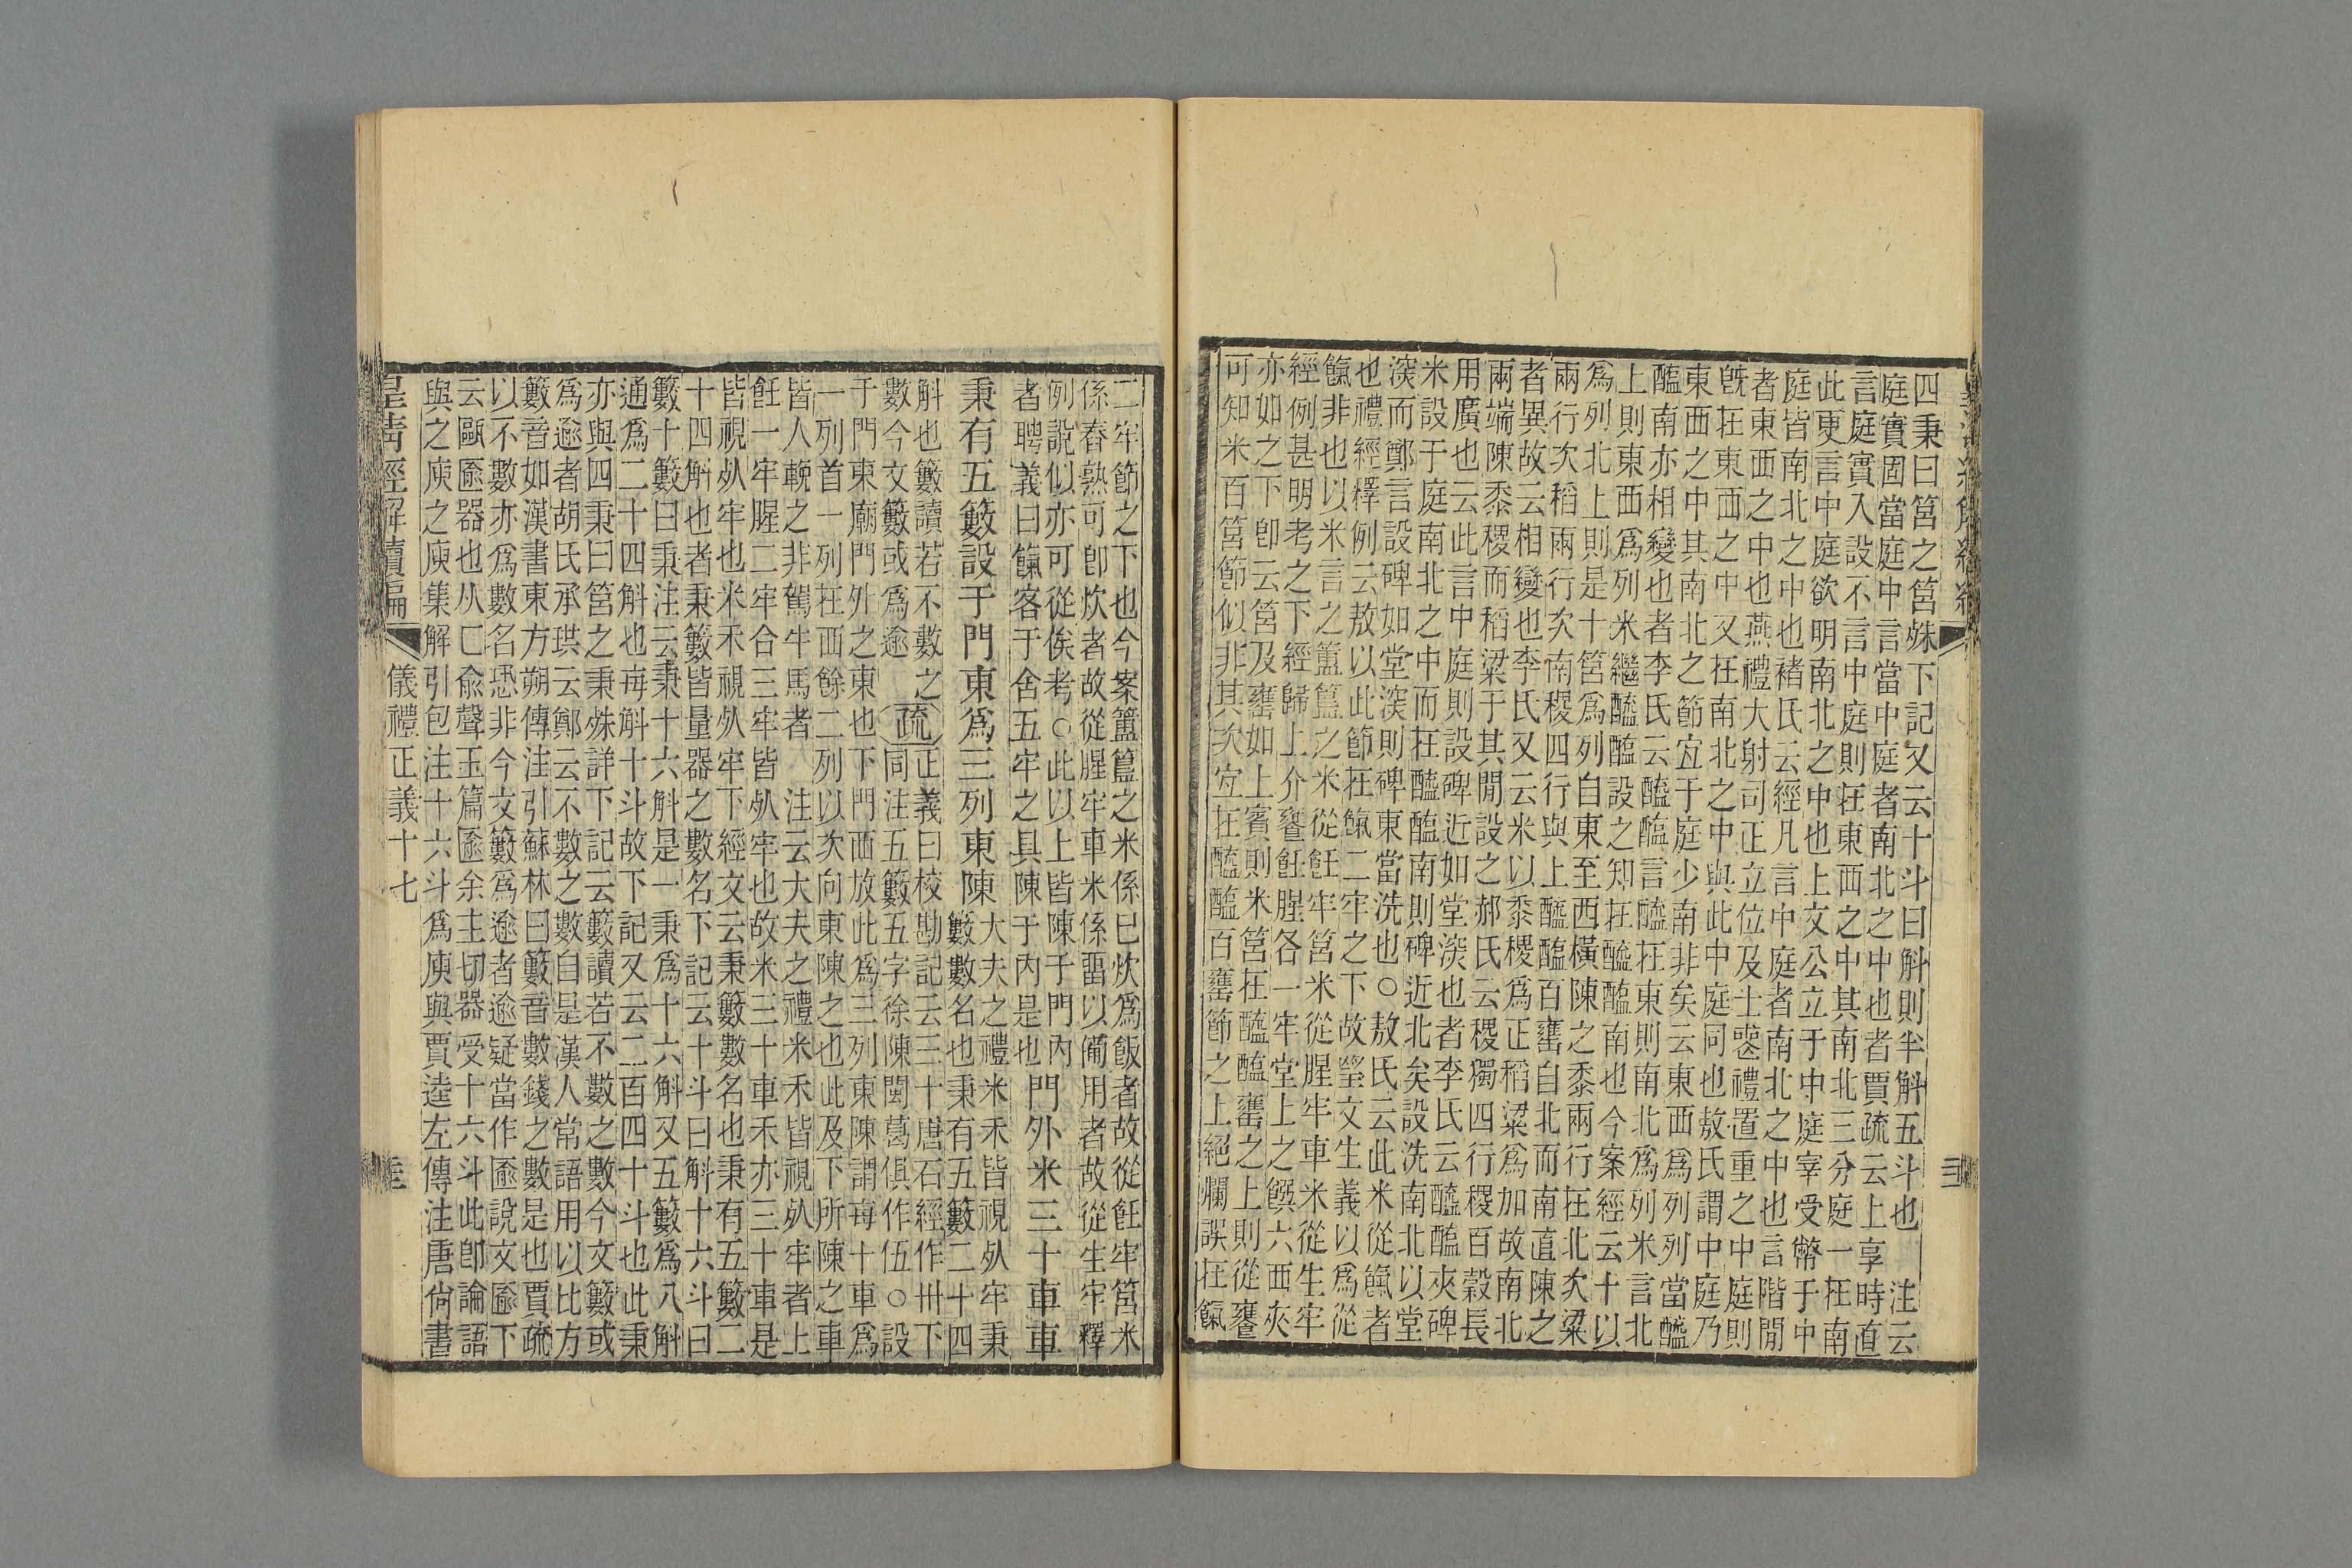 四秉曰筥之筥殊下記又云十斗曰斛則半斛五斗也　注云
庭實固當庭中言當中庭者南北之中也者賈疏云上享時直
言庭實入設不言中庭則在東西之中其南北三分庭一在南
此更言中庭欲明南北之中也上文公立于中庭宰受幣于中
庭皆南北之中也褚氏云經凡言中庭者南北之中也言階閒
者東西之中也燕禮大射司正立位及士喪禮置重之中庭則
旣在東西之中又在南北之中與此中庭同也敖氏謂中庭乃
東西之中其南北之節宜于庭少南非矣云東西爲列列當醯
醢南亦相變也者李氏云醯醢言醯在東則南北爲列米言北
上則東西爲列米繼醯醢設之知在醯醢南也今案經云十以
爲列北上則是十筥爲列自東至西橫陳之黍兩行在北次粱
兩行次稻兩行次南稷四行與上醯醢百罋自北而南直陳之
者異故云相變也李氏又云米以黍稷爲正稻粱爲加故南北
兩端陳黍稷而稻粱于其閒設之郝氏云稷獨四行稷百穀長
用廣也云此言中庭則設碑近如堂深也者李氏云醯醢夾碑
米設于庭南北之中而在醯醢南則碑近北矣設洗南北以堂
深而鄭言設碑如堂深則碑東當洗也○敖氏云此米從餼者
也禮經釋例云敖以此節在餼二牢之下故瑩文生義以爲從
餼非也以米言之簠簋之米從飪牢筥米從腥牢車米從生牢
經例甚明考之下經歸上介饔飪腥各一牢堂上之饌六西夾
亦如之下卽云筥及罋如上賓則米筥在醯醢罋之上則從饔
可知米百筥節似非其次宜在醯醢百罋節之上絕爛誤在餼
二牢節之下也今案簠簋之米係巳炊爲飯者故從飪牢筥米
係舂熟可卽炊者故從腥牢車米係畱以備用者故從生牢釋
例說似亦可從俟考○此以上皆陳于門內
者聘義曰餼客于舍五牢之具陳于內是也
門外米三十車車
秉有五籔設于門東爲三列東陳
大夫之禮米禾皆視死牢秉
籔數名也秉有五籔二十四
斛也籔讀若不數之
數今文籔或爲逾
疏
正義曰校勘記云三十唐石經作卅下
同注五籔五字徐陳閩葛俱作伍○設
于門東廟門外之東也下門西放此爲三列東陳謂每十車爲
一列首一列在西餘二列以次向東陳之也此及下所陳之車
皆人輓之非駕牛馬者　注云大夫之禮米禾皆視死牢者上
飪一牢腥二牢合三牢皆死牢也故米三十車禾亦三十車是
皆視死牢也米禾視死牢下經文云秉籔數名也秉有五籔二
十四斛也者秉籔皆量器之數名下記云十斗曰斛十六斗曰
籔十籔曰秉注云秉十六斛是一秉爲十六斛又五籔爲八斛
通爲二十四斛也每斛十斗故下記又云二百四十斗也此秉
亦與四秉曰筥之秉殊詳下記云籔讀若不數之數今文籔或
爲逾者胡氏承珙云鄭云不數之數自是漢人常語用以比方
籔音如漢書東方朔傳注引蘇林曰籔音數錢之數是也賈疏
以不數亦爲數名恐非今文籔爲逾者逾疑當作匬說文匬下
云甌匬器也从匚俞聲玉篇匬余主切器受十六斗此卽論語
與之庾之庾集解引包注十六斗爲庾與賈逵左傳注唐尙書
皇淸經解續編
儀禮正義十七